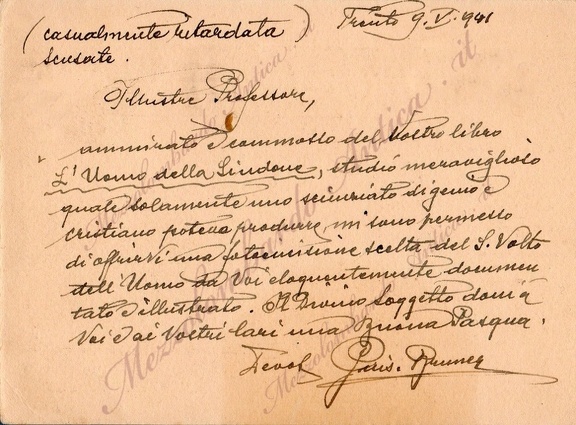 (casualmente ritardata Trento 9.V.941
scusate.
Illustre Professore,
ammirato e commosso del Vostro libro
L'Uomo della Sindone, studio meraviglioso
quale solamente uno scienziato di genio e
cristiano poteva produrre, mi sono permesso
di offrirvi una fotoincisione scelta del S. Volto
dell'Uomo da Voi eloquentemente documen
tato e illustrato. Il Divino Soggetto doni a
Voi e ai Vostri cari una Buona Pasqua.
Devot
Mezzolombardo Antica.it
Mezzolombardo Antica.it